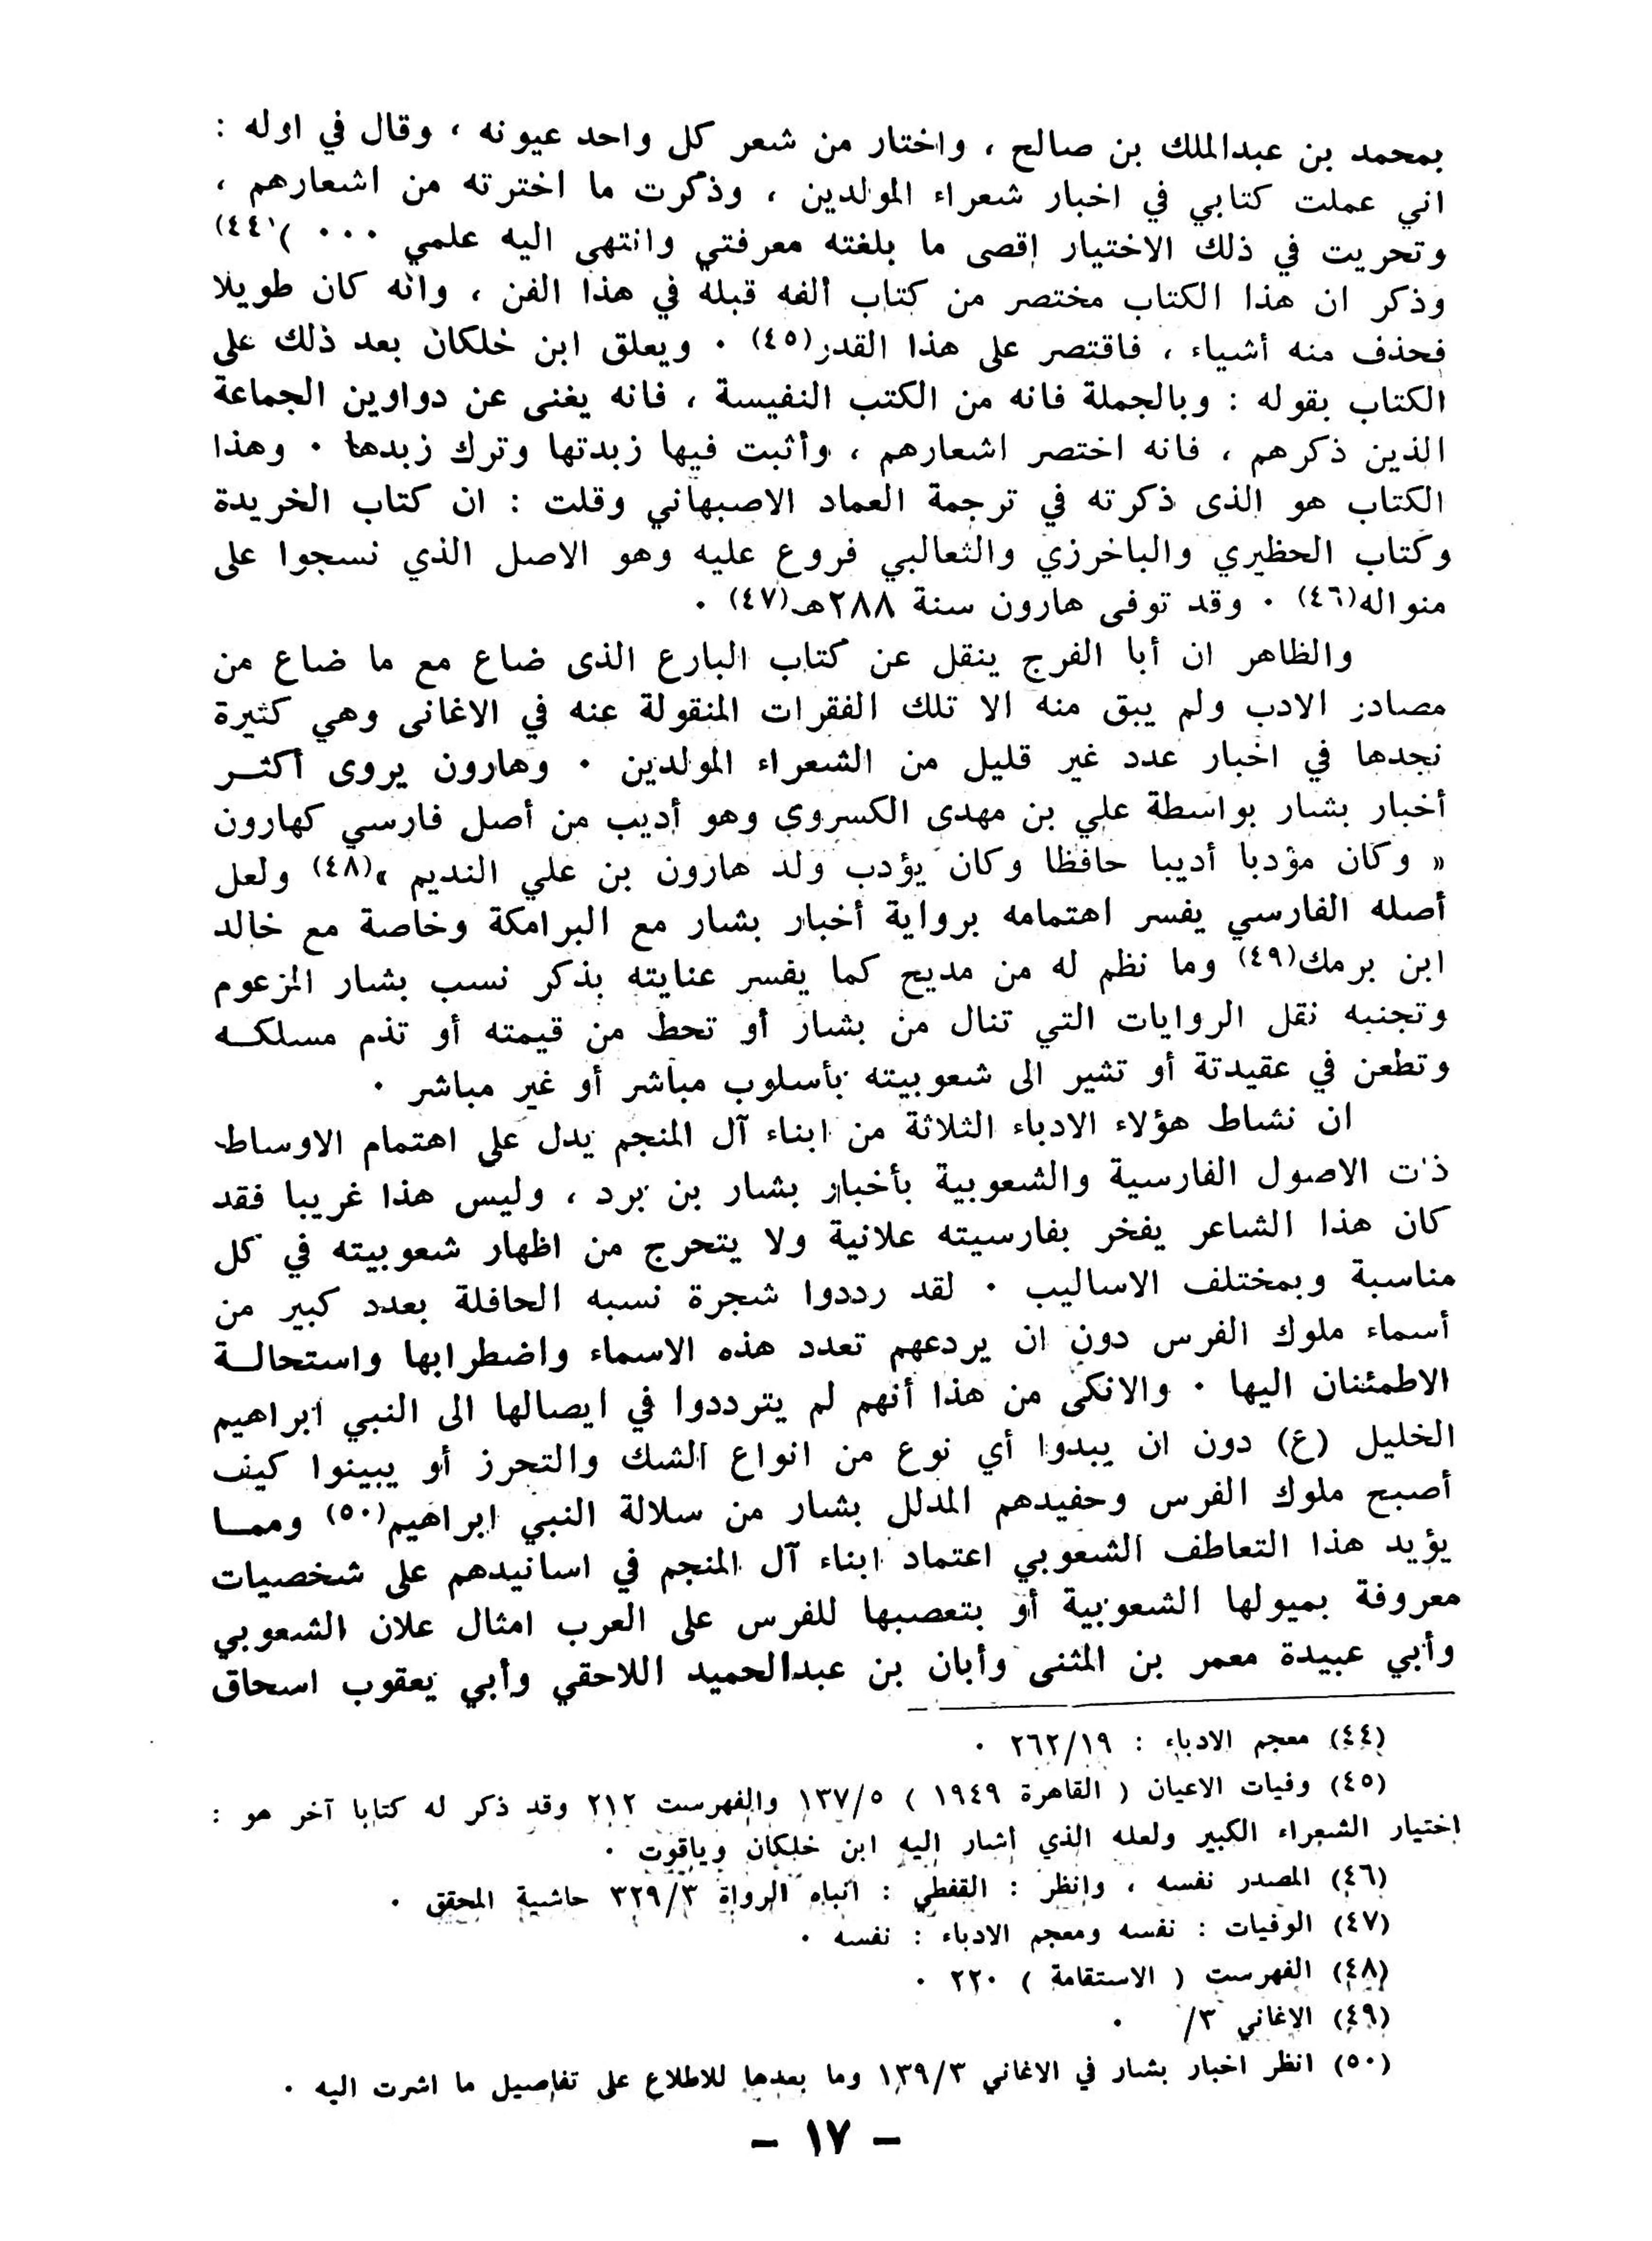 بمحمد بن عبدالملك بن صالح ، واختار من شعر كل واحد عيونه ، وقال في اوله :
اني عملت كتابي في اخبار شعراء المولدين ، وذكرت ما اخترته من اشعارهم ،
وتحريت في ذلك الاختيار إقصى ما بلغته معرفتي وانتهى اليه علمي ٠٠٠ )(٤٤)
وذكر ان هذا الكتاب مختصر من كتاب ألفه قبله في هذا الفن ، وانه كان طويلا
فحذف منه أشياء ، فاقتصر على هذا القدر(٤٥) ٠ ويعلق ابن خلكان بعد ذلك على
الكتاب بقوله : وبالجملة فانه من الكتب النفيسة ، فانه يغنى عن دواوين الجماعة
الذين ذكرهم ، فانه اختصر اشعارهم ، وأثبت فيها زبدتها وترك زبدها ٠ وهذا
الكتاب هو الذى ذكرته في ترجمة العماد الاصبهاني وقلت : ان كتاب الخريدة
وكتاب الحظيري والباخرزي والثعالبي فروع عليه وهو الاصل الذي نسجوا على
منواله(٤٦) ٠ وقد توفى هارون سنة ٢٨٨هـ(٤٧) ٠
والظاهر ان أبا الفرج ينقل عن كتاب البارع الذى ضاع مع ما ضاع من
مصادر الادب ولم يبق منه الا تلك الفقرات المنقولة عنه في الاغانى وهي كثيرة
نجدها في اخبار عدد غير قليل من الشعراء المولدين ٠ وهارون يروى أكثــر
أخبار بشار بواسطة علي بن مهدى الكسروى وهو أديب من أصل فارسي كهارون
« وكان مؤدبا أديبا حافظا وكان يؤدب ولد هارون بن علي النديم »(٤٨) ولعل
أصله الفارسي يفسر اهتمامه برواية أخبار بشار مع البرامكة وخاصة مع خالد
ابن برمك(٤٩) وما نظم له من مديح كما يفسر عنايته بذكر نسب بشار المزعوم
وتجنبه نقل الروايات التي تنال من بشار أو تحط من قيمته أو تذم مسلكــه
وتطعن في عقيدتة أو تشير الى شعوبيته بأسلوب مباشر أو غير مباشر ٠
ان نشاط هؤلاء الادباء الثلاثة من ابناء آل المنجم يدل على اهتمام الاوساط
ذات الاصول الفارسية والشعوبية بأخبار بشار بن برد ، وليس هذا غريبا فقد
كان هذا الشاعر يفخر بفارسيته علانية ولا يتحرج من اظهار شعوبيته في كل
مناسبة وبمختلف الاساليب ٠ لقد رددوا شجرة نسبه الحافلة بعدد كبير من
أسماء ملوك الفرس دون ان يردعهم تعدد هذه الاسماء واضطرابها واستحالــة
الاطمئنان اليها ٠ والانكى من هذا أنهم لم يترددوا في ايصالها الى النبي ابراهيم
الخليل (ع) دون ان يبدوا أي نوع من انواع الشك والتحرز أو يبينوا كيف
أصبح ملوك الفرس وحفيدهم المدلل بشار من سلالة النبي ابراهيم(٥٠) وممــا
يؤيد هذا التعاطف الشعوبي اعتماد ابناء آل المنجم في اسانيدهم على شخصيات
معروفة بميولها الشعوبية أو بتعصبها للفرس على العرب امثال علان الشعوبي
وأبي عبيدة معمر بن المثنى وأبان بن عبدالحميد اللاحقي وأبي يعقوب اسحاق
(٤٤) معجم الادباء : ٢٦٢/١٩ ٠
(٤٥) وفيات الاعيان ( القاهرة ١٩٤٩ ) ١٣٧/٥ والفهرست ٢١٢ وقد ذكر له كتابا آخر هو :
اختيار الشعراء الكبير ولعله الذي اشار اليه ابن خلكان وياقوت ٠
(٤٦) المصدر نفسه ، وانظر : القفطي : انباه الرواة ٣٢٩/٣ حاشية المحقق ٠
(٤٧) الوفيات : نفسه ومعجم الادباء : نفسه ٠
(٤٨) الفهرست ( الاستقامة ) ٢٢٠ ٠
(٤٩) الاغاني ٣/ ٠
(٥٠) انظر اخبار بشار في الاغاني ١٣٩/٣ وما بعدها للاطلاع على تفاصيل ما اشرت اليه ٠
– ١٧ –